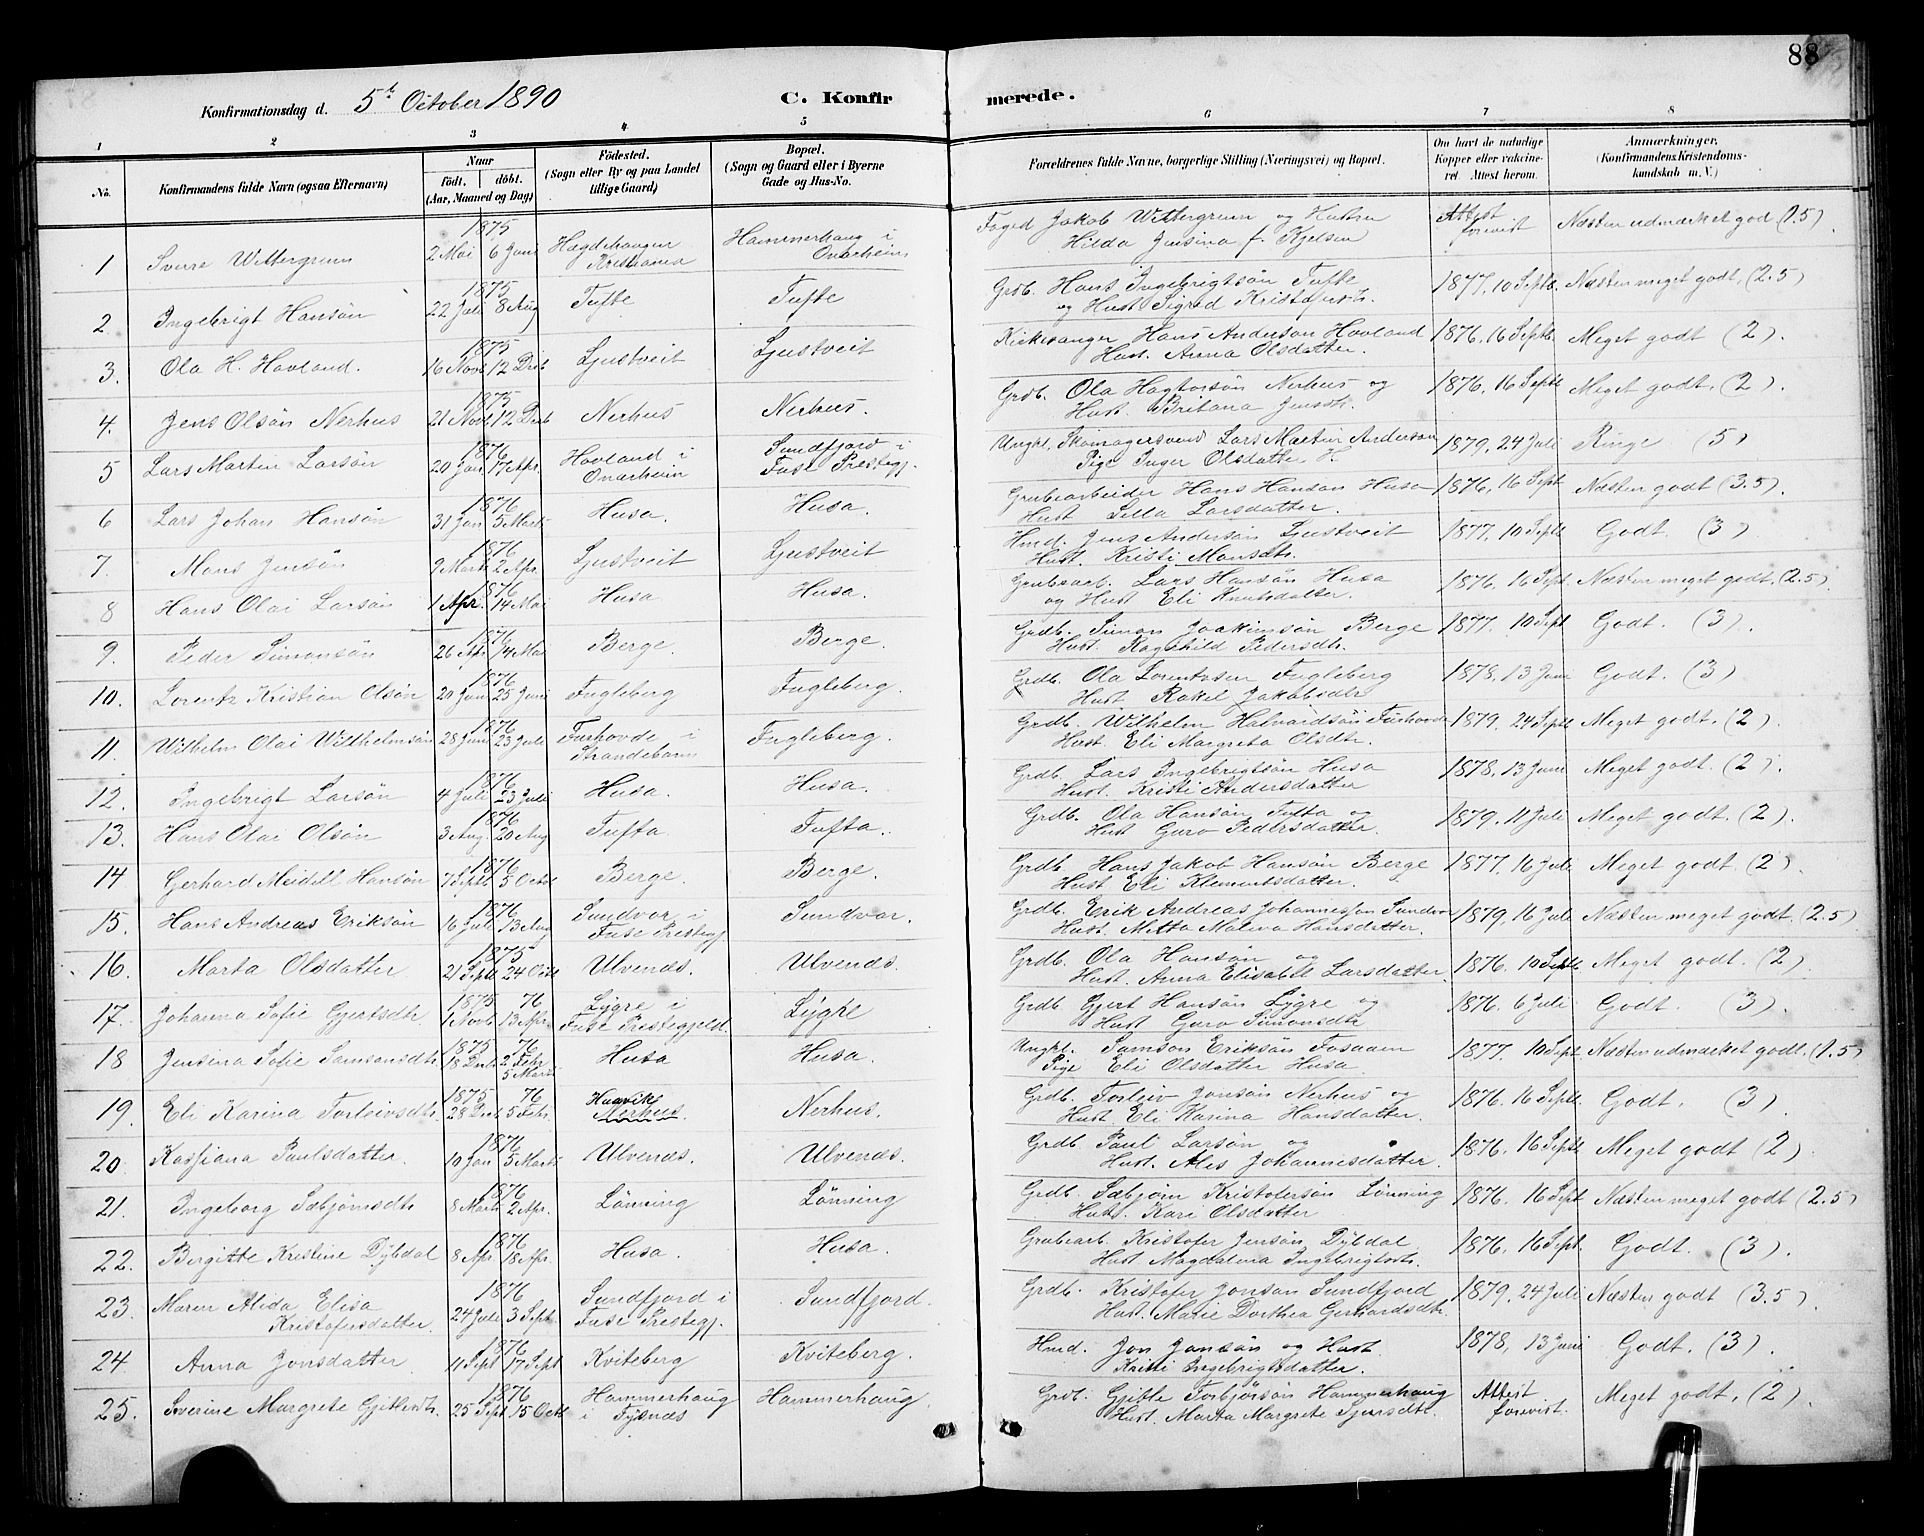 88
Konfirmationsdag d. 5te October 1890 C. Konfirmerede.
1 2 3 4 5 6 7 8
No. Konfirmandens fulde Navn (ogsaa Efternavn) Naar födt. döbt. (Aar, Maaned og Dag) Födested. (Sogn eller By og paa Landet tillige Gaard) Bopæl. (Sogn og Gaard eller i Byerne Gade og Hus-No. Forældrenes fulde Navne, borgerlige Stilling (Næringsvei) og Bopæl. Om havt de naturlige Kopper eller vaccineret. Attest herom. Anmærkninger. (Konfirmandens Kristendomskundskab m. V.)
1 Sverre Wittergreen 1875 2 Mai 6 Juni Hægdehaugen Kristiania Hammerhaug i Onarheim Foged Jakob Wittergreen og Hustru Hilda Jensina f. Kjelsen Attest forevist Næsten udmærket god (1.5)
2. Ingebrigt Hansön 1875 22 Juli 8 Aug Tufte Tufte Grdb. Hans Ingebrigtsön Tufte og Hust. Sigrid Kristofersdtr. 1877, 10 Septb. Næsten meget godt, (2.5)
3. Ola H. Hovland. 1875 16 Novb 12 Decb Ljustveit Ljustveit Kirkesanger Hans Anderson Hovland Hust. Anna Olsdatter. 1876, 16 Septb. Meget godt (2).
4. Jens Olsön Nerhus 1875 21 Novb 12 Decb Nerhus Nerhus. Grdb. Ola Hagtorsön Nerhus og Hust. Britana Jensdtr. 1876, 16 Septb Meget godt, (2)
5 Lars Martin Larsön 1876 20 Jan 17 Apr. Hovland i Onarheim Sundfjord i Fuse Prestegj. Ungkl. Skomagersvend Lars Martin Anderson Pige Inger Olsdatter H. 1879, 24 Juli Ringe (5)
6 Lars Johan Hansön 1876 31 Jan 5 Marts Husa. Husa. Grubearbeider Hans Hanson Husa Hust Silla Larsdatter. 1876, 16 Sept Næsten godt (3.5)
7. Mons Jensön 1876 9 Marts 2 Apr. Ljustveit Ljustveit Hmd. Jens Andersön Ljustveit Hust. Kristi Monsdtr. 1877, 10 Septb Godt. (3)
8 Hans Olai Larsön 1876 1 Apr. 14 Mai Husa Husa. Grubearb. Lars Hansön Husa og Hust Eli Knutsdatter. 1876, 16 Sept. Næsten meget godt, (2.5)
9. Peder Simonsön 1876 26 Apr 14 Mai Berge. Berge. Grdb. Simon Joakimsön Berge Hust. Ragnhild Pedersdtr. 1877, 10 Sept Godt. (3)
10. Lorentz Kristian Olsön 1876 20 Juni 25 Juni Fugleberg Fugleberg. Grdb. Ola Lorentzsen Fugleberg Hust. Rakel Jakobsdtr 1878, 13 Juni Godt. (3)
11. Wilhelm Olai Willhelmsön 1876 28 Juni 23 Juli Furhovde i Strandebarm Fugleberg. Grdb. Wilhelm Halvardsön Furhovde Hust. Eli Margreta Olsdtr. 1879, 24 Septb Meget godt. (2)
12. Ingebrigt Larsön 1876 4 Juli 23 Juli Husa. Husa. Grdb. Lars Ingebrigtsön Husa Hust. Kristi Andersdatter 1878, 13 Juni Meget godt. (2).
13. Hans Olai Olsön 1876 3 Aug. 20 Aug Tufta Tufta. Grdb. Ola Hansön Tufta og Hust Guro Pedersdatter. 1879, 11 Juli Meget godt. (2).
14 Gerhard Meidell Hansön 1876 7 Septb 5 Octob Berge. Berge. Grdb. Hans Jakob Hansön Berge Hust Eli Klementsdatter. 1877, 16 Juli Meget godt (2)
15. Hans Andreas Eriksön 1876 16 Juli 13 Aug Sundvor i Fuse Prestegj Sundvor. Grdb. Erik Andreas Johannesson Sundvor Hust. Mitta Maleva Hansdatter. 1879, 16 Juli Næsten meget godt, (2.5)
16. Marta Olsdatter 1875 21 Septb 24 Octb Ulvenæs. Ulvenæs Grdb. Ola Hansön og Hust. Anna Elisabet Larsdatter 1876, 10 Septb. Meget godt. (2)
17. Johanna Sofie Gjertsdtr 1875 1 Novb 76 13 Apr. Lygre i Fuse Prestegjeld. Lygre Grdb. Gjert Hansön Lygre og Hust Guro Simonsdtr 1876, 6 Juli Godt. (3)
18 Jensina Sofie Samsonsdtr. 1875 18 Decb 76 2 Febr 5 Marts Husa Husa. Ungkl. Samson Eriksön Pige Eli Olsdatter Husa 1877, 10 Sept Næsten udmærket godt. (1.5)
19. Eli Karina Torleivsdtr. 1875 28 Decb 76 5 Febr. Husvik Nerhus Nerhus. Grdb. Torleiv Jonsön Nerhus og Hust. Eli Karina Hansdatter. 1876, 16 Septb Godt. (3)
20. Kassiana Paulsdatter. 1876 10 Jan 5 Marts Ulvenæs. Ulvenæs. Grdb Paul Larsön og Hust. Ales Johannesdatter. 1876, 16 Septb Meget godt (2)
21. Ingeborg Sæbjörnsdtr. 1876 8 Marts 2 Apr. Lönning Lönning Grdb. Sæbjörn Kristofersön Lönning Hust. Kari Olsdatter 1876, 16 Sept Næsten meget godt (2.5)
22. Birgitte Kristine Dybdal 1876 8 Apr. 18 Apr. Husa. Husa. Grubearb. Kristofer Jensön Dybdal Hust Magdalena Ingebrigtsdtr. 1876, 16 Sept. Godt. (3).
23. Maren Alida Elisa Kristofersdatter. 1876 24 Juli 3 Septb Sundfjord i Fuse Prestegj. Sundfjord. Grdb. Kristofer Jonsön Sundfjord Hust. Marie Dorthea Gerhardsdtr. 1879, 24 Juli Næsten godt (3.5)
24 Anna Jonsdatter 1876 11 Sept 17 Sept Kviteberg Kviteberg. Hmd. Jon Jonsön og Hust Kristi Ingebrigtsdatter. 1878, 13 Juni Godt. (3)
25. Severine Margrete Gjitlesdtr. 1876 25 Sept 15 Octb Hammerhaug i Tysnæs Hammerhaug Grdb. Gjitle Torbjörsön Hammerhaug Hust. Marta Margrete Sjursdtr. Attest forevist. Meget godt, (2)